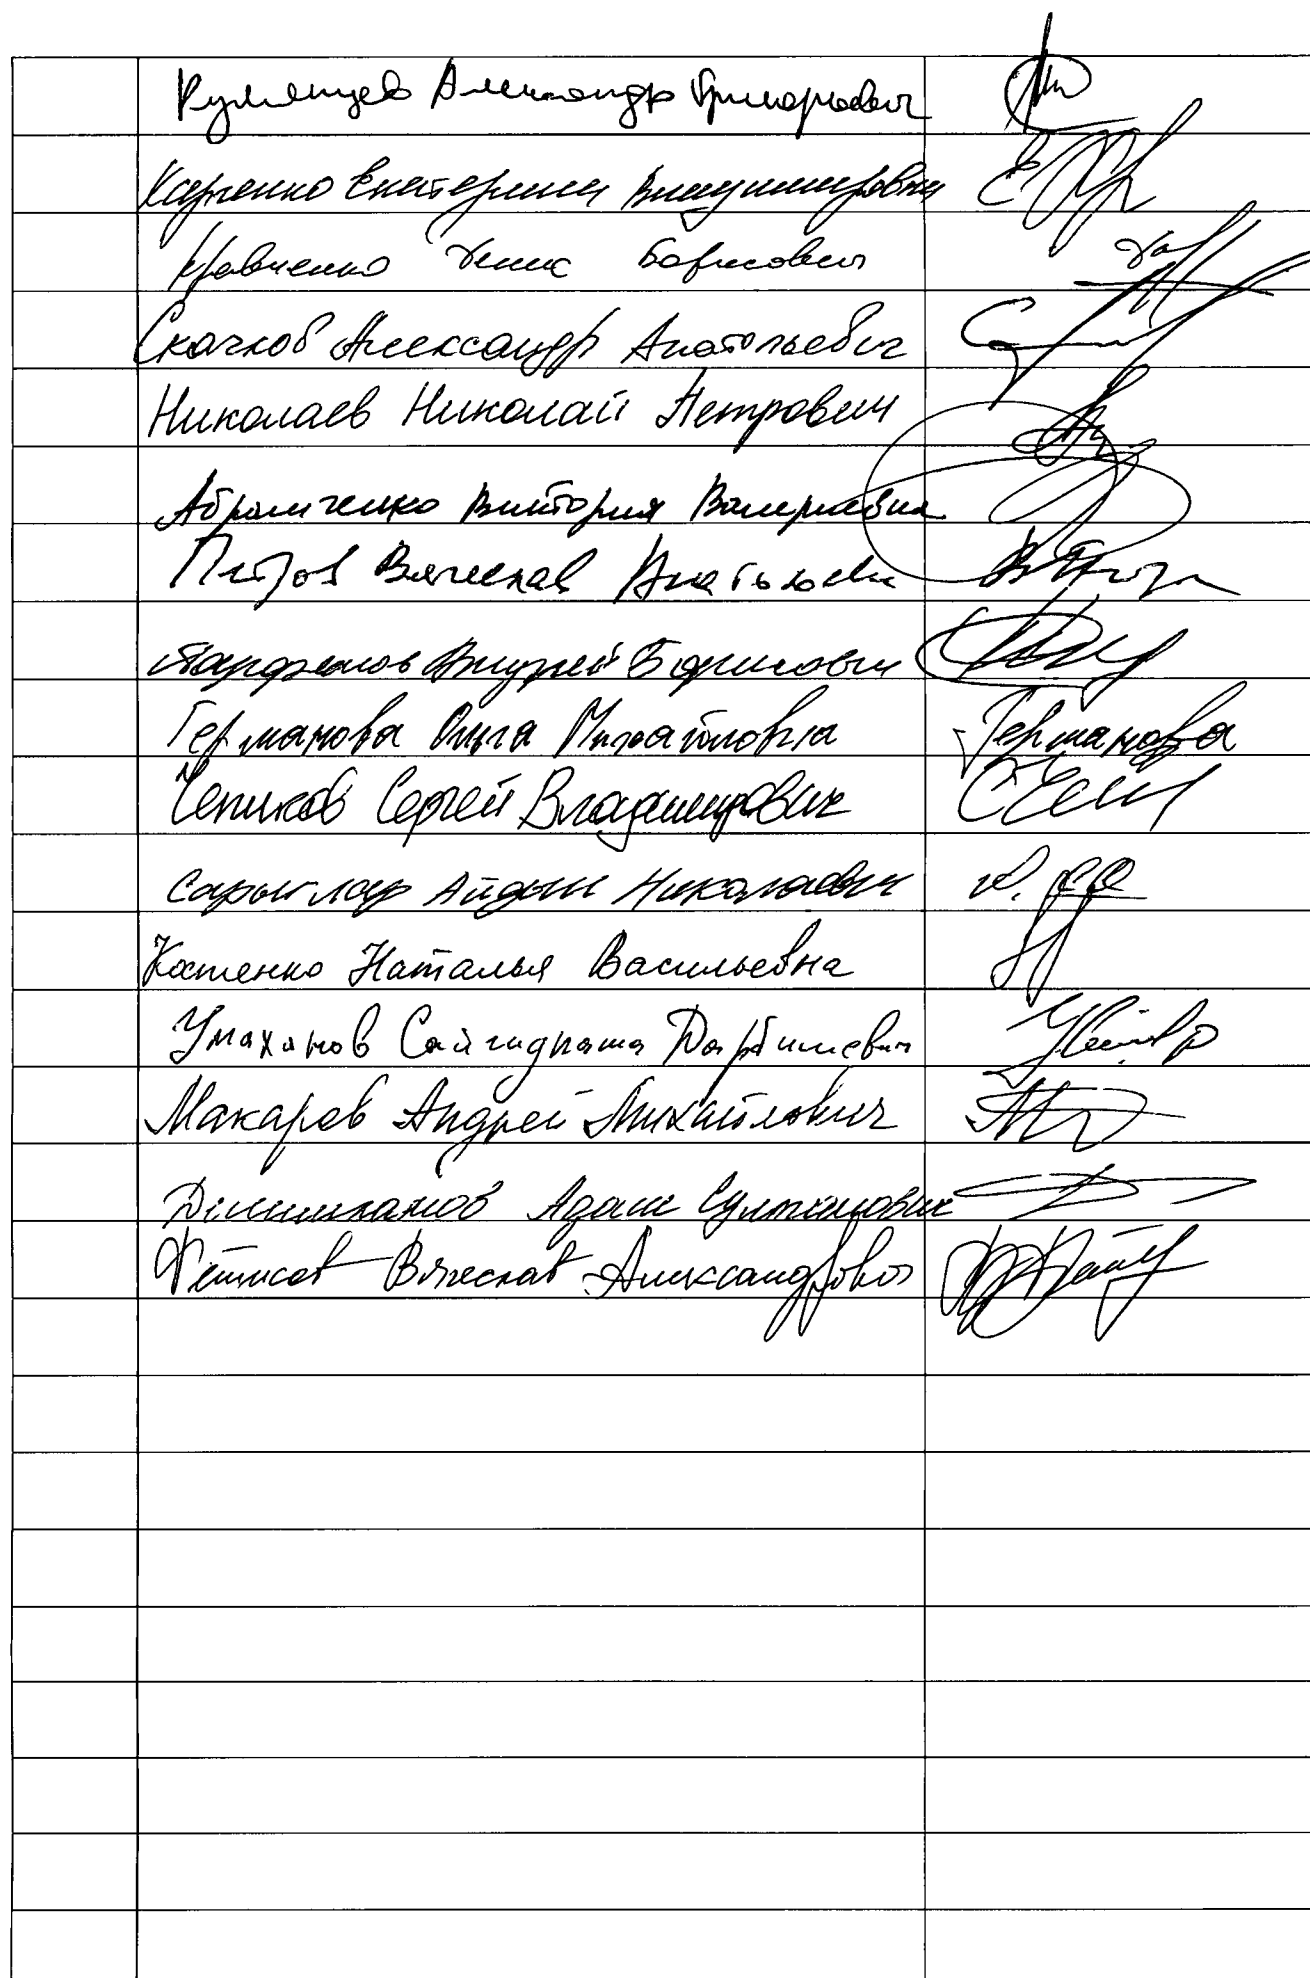 Румянцев Александр Григорьевич
Харченко Екатерина Владимировна
Кравченко Денис Борисович
Скачков Александр Анатольевич
Николаев Николай Петрович
Абрамченко Виктория Валериевна
Петров Вячеслав Анатольевич
Парфенов Андрей Борисович
Германова Ольга Михайловна Германова
Чепиков Сергей Владимирович
Сарыглар Айдын Николаевич
Костенко Наталья Васильевна
Умаханов Сайгидпаша Дарбишевич
Макаров Андрей Михайлович
Адам Султанович
Фетисов Вячеслав Александрович